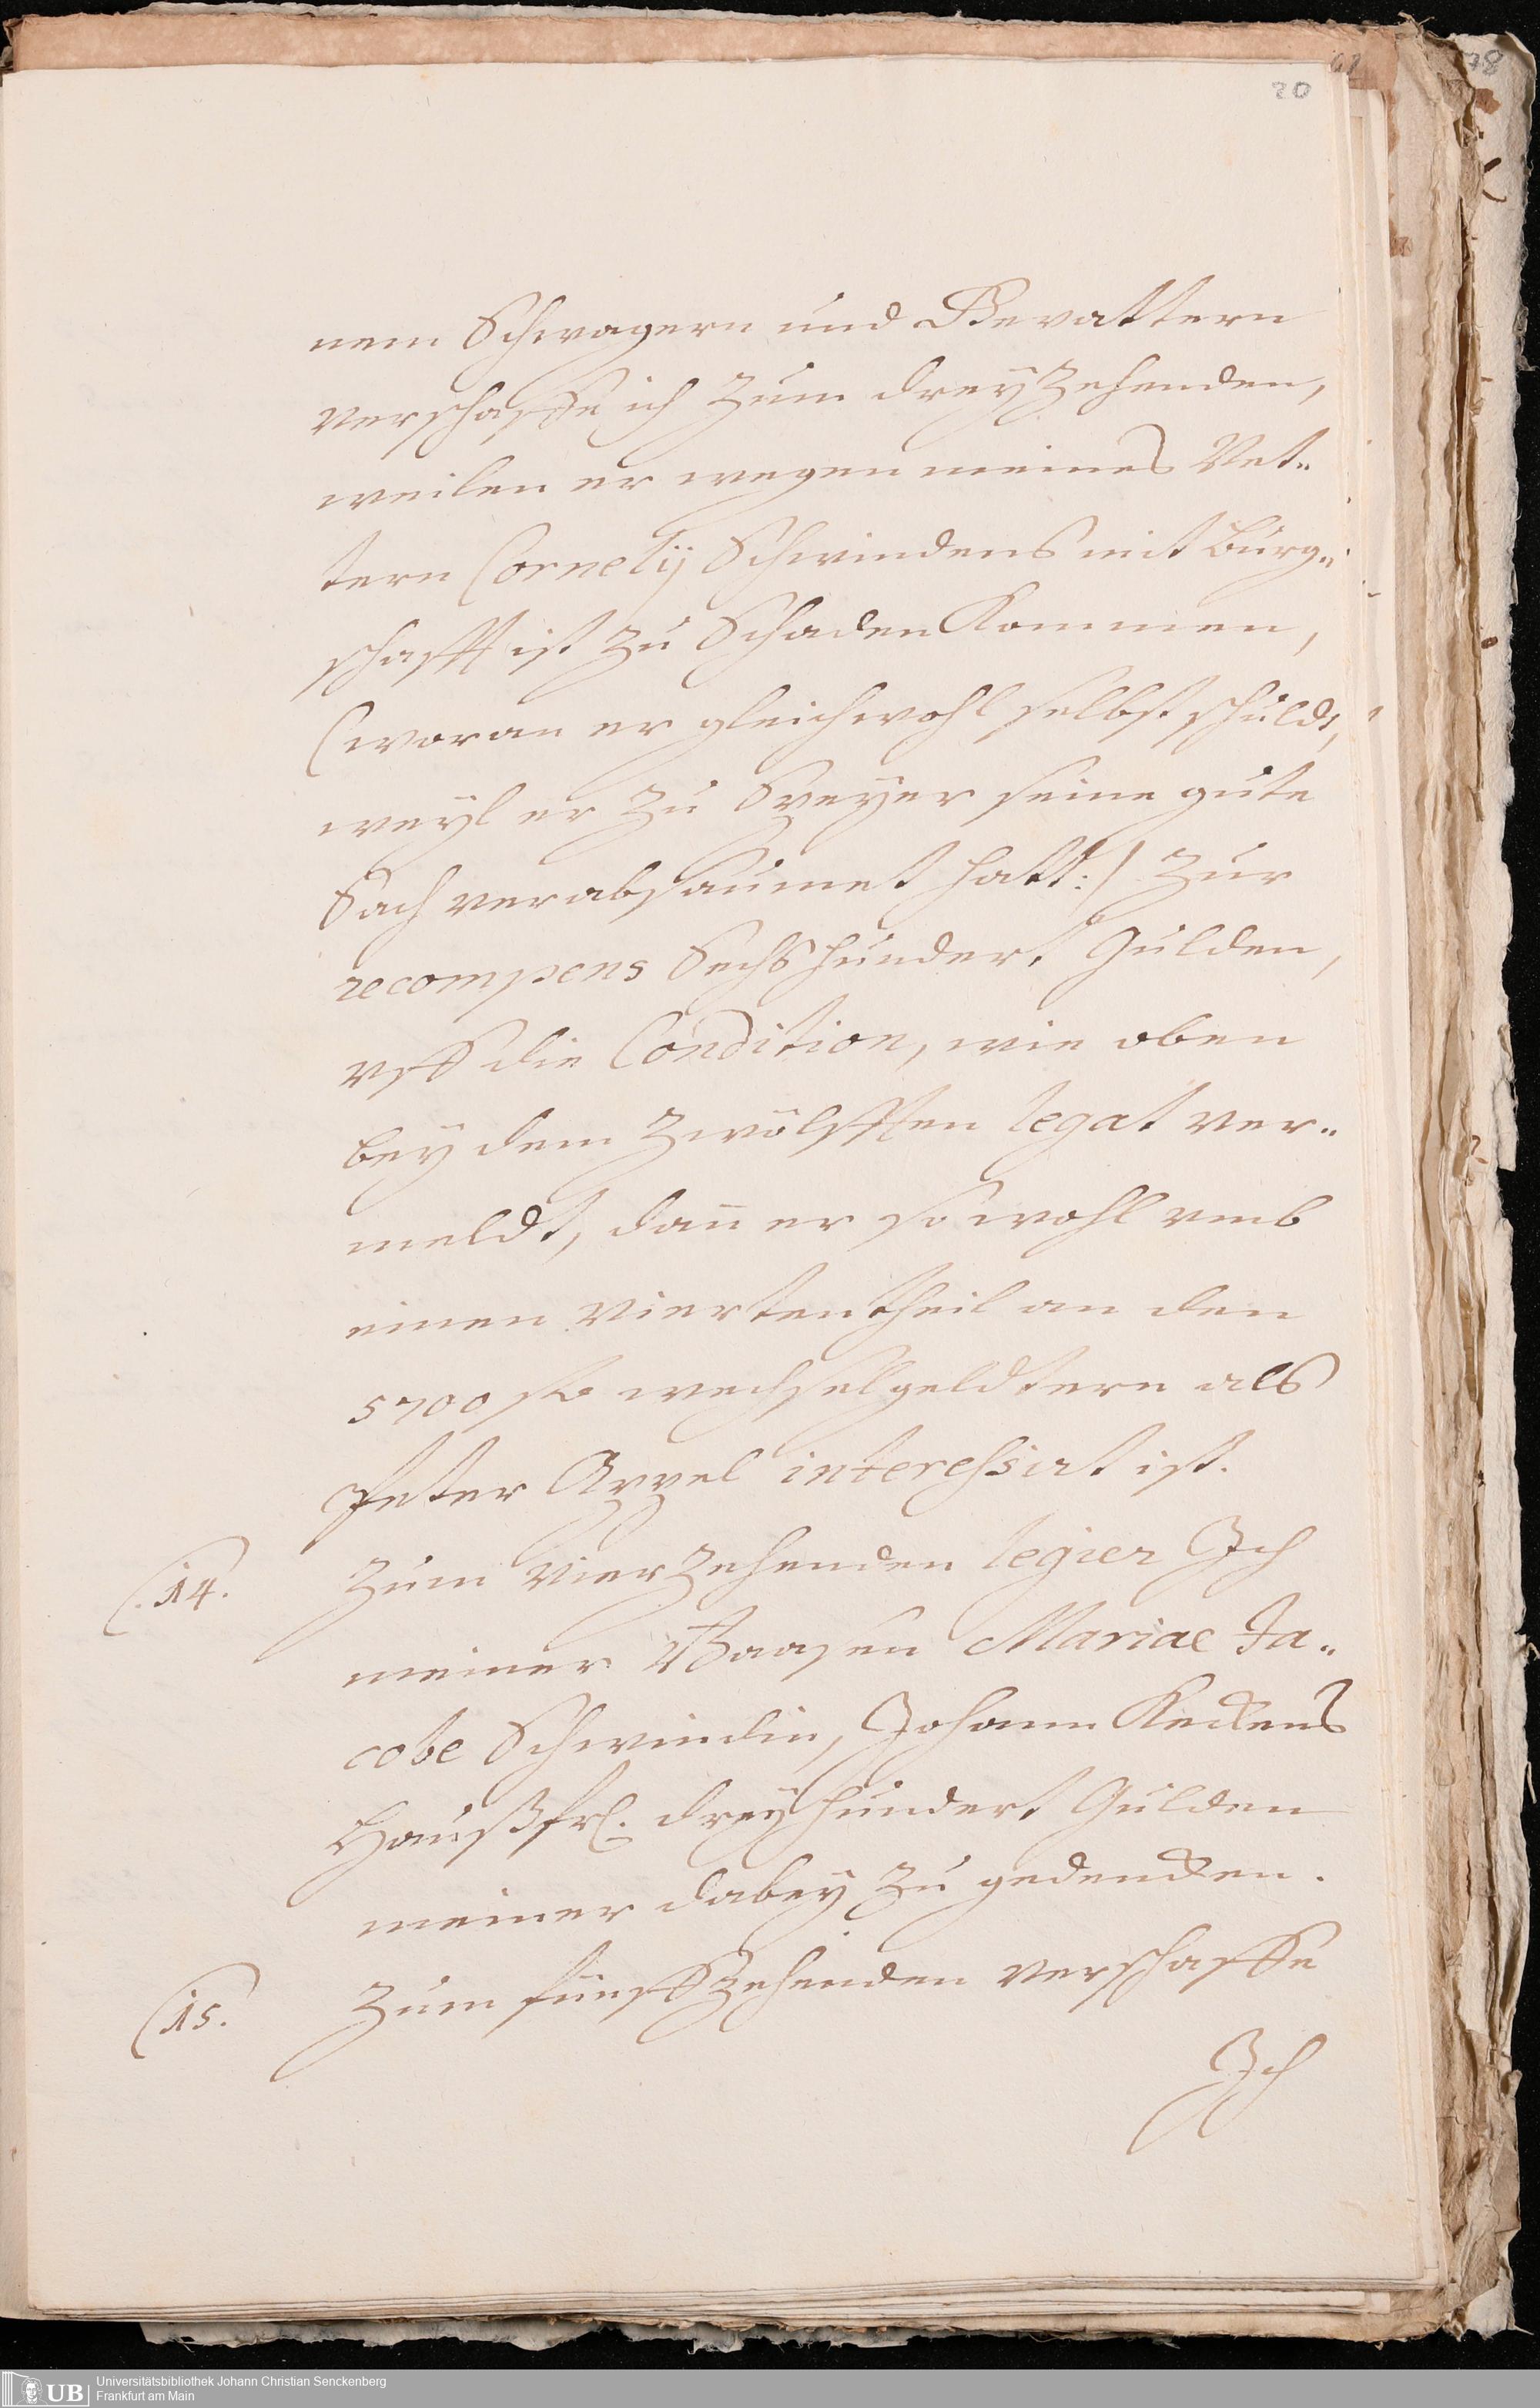 20
nem Schwagern und Gevattern
verschaffe ich zum dreyzehenden,
weilen er wegen meines Vet„
tern Cornelij Schwindens mit Bürg„
schafft ist zu Schaden kommen,
(woran er gleichwohl selbst schuldt,
weyl er zu Speyer seine gute
Sach verabsaumet hatt:) zur
recompens Sechshundert Gulden,
vff die Condition, wie oben
bey dem zwölfften legat ver„
meldt, dan̄ er so wohl vmb
einen viertentheil an den
5700 fl. wechselgeldtern als
Peter Appel interessirt ist.
14. Zum vierzehenden legier Ich
meiner Baasen Mariae Ja„
cobe Schwindin, Johann
Haußfr. dreyhundert Gulden
meiner dabey zu gedencken.
15. Zum fünffzehenden verschaffe
Ich
78
UB Universitätsbibliothek Johann Christian Senckenberg
Frankfurt am Main